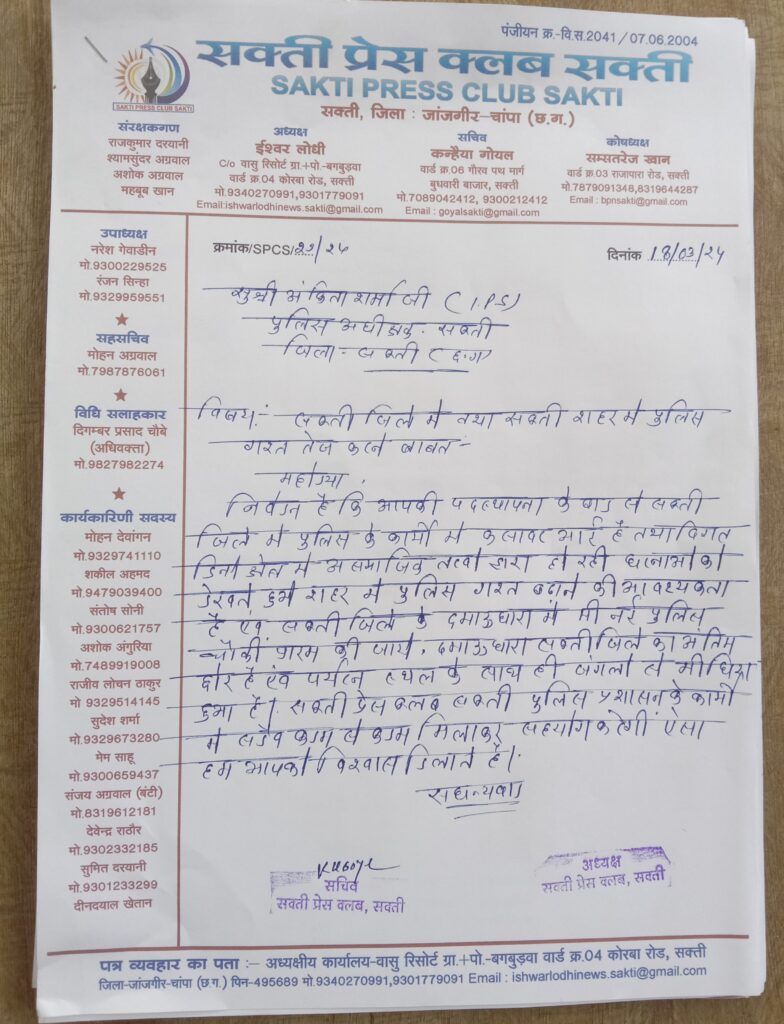 पंजीयन क्र.-वि.स.2041 / 07.06.2004
सक्ती प्रेस क्लब सक्ती
SAKTI PRESS CLUB SAKTI
SAKTI PRESS CLUB SAKTI
सक्ती, जिला : जांजगीर-चांपा (छ.ग.)
संरक्षकगण
राजकुमार दरयानी
श्यामसुंदर अग्रवाल
अशोक अग्रवाल
महबूब खान
अध्यक्ष
ईश्वर लोधी
C/o वासु रिसोर्ट ग्रा.+पो.-बगबुड़वा
वार्ड क्र.04 कोरबा रोड, सक्ती
मो.9340270991,9301779091
Email:ishwarlodhinews.sakti@gmail.com
सचिव
कन्हैया गोयल
वार्ड क्र.06 गौरव पथ मार्ग
बुधवारी बाजार, सक्ती
मो.7089042412, 9300212412
Email : goyalsakti@gmail.com
कोषध्यक्ष
सम्सतरेज खान
वार्ड क्र.03 राजापारा रोड, सक्ती
मो.7879091348,8319644287
Email : bpnsakti@gmail.com
उपाध्यक्ष
नरेश गेवाडीन
मो.9300229525
रंजन सिन्हा
मो.9329959551
सहसचिव
मोहन अग्रवाल
मो.7987876061
विधि सलाहकार
दिगम्बर प्रसाद चौबे
(अधिवक्ता)
मो.9827982274
कार्यकारिणी सदस्य
मोहन देवांगन
मो.9329741110
शकील अहमद
मो.9479039400
संतोष सोनी
मो.9300621757
अशोक अंगुरिया
मो.7489919008
राजीव लोचन ठाकुर
मो 9329514145
सुदेश शर्मा
मो.9329673280
मेम साहू
मो.9300659437
संजय अग्रवाल (बंटी)
मो.8319612181
देवेन्द्र राठौर
मो.9302332185
सुमित दरयानी
मो.9301233299
दीनदयाल खेतान
क्रमांक/SPCS/22/24
दिनांक 18/03/24
सुश्री अंकिता शर्मा जी (I.P.S)
पुलिस अधीक्षक. सक्ती
जिला- सक्ती (छ.ग)
विषय:- सक्ती जिले मे तथा सक्ती शहर मे पुलिस
गश्त तेज करने बाबत-
महोदया,
निवेदन है कि आपकी पदस्थापना के बाद से सक्ती
जिले मे पुलिस के कार्यो मे कसावट आई है तथा विगत
दिनो क्षेत्र मे असमाजिक तत्वो द्वारा हो रही घटनाओ को
देखते हुये शहर मे पुलिस गश्त बढाने की आवश्यकता
है एवं सक्ती जिले के दमाऊधारा मे भी नई पुलिस
चौकी प्रारंभ की जाये, दमाऊधारा सक्ती जिले का अंतिम
छोर है एंव पर्यटन स्थल के साथ ही जंगलो से भी घिरा
हुआ है। सक्ती प्रेस क्लब सक्ती पुलिस प्रशासन के कार्यो
मे सदैव कदम से कदम मिलाकर सहयोग करेगी ऐसा
हम आपको विश्वास दिलाते है।
सधन्यवाद
सचिव
सक्ती प्रेस क्लब, सक्ती
अध्यक्ष
सक्ती प्रेस क्लब, सक्ती
पत्र व्यवहार का पता :– अध्यक्षीय कार्यालय-वासु रिसोर्ट ग्रा.+पो.-बगबुड़वा वार्ड क्र.04 कोरबा रोड, सक्ती
जिला-जांजगीर-चांपा (छ.ग.) पिन-495689 मो.9340270991,9301779091 Email : ishwarlodhinews.sakti@gmail.com